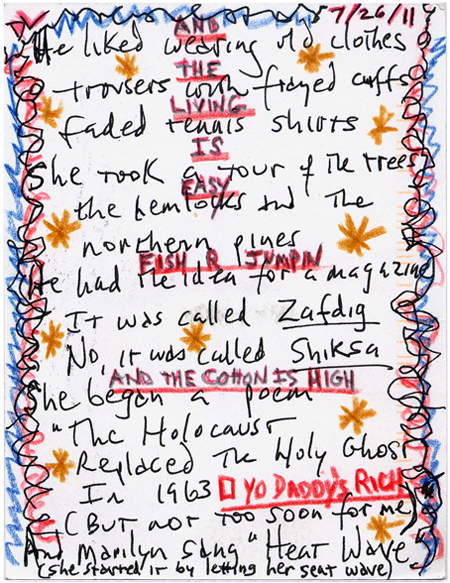 7/26/11
AND
He liked wearing old clothes
THE
trousers with frayed cuffs
LIVING
faded tennis shirts
IS
She took a tour of the trees
EASY
the hemlocks and the
northern pines
FISH R JUMPIN
He had the idea for a magazine
It was called Zafdig
No, it was called Shiksa
AND THE COTTON IS HIGH
She began a poem
"The Holocaust
Replaced The Holy Ghost
In 1963
YO DADDY'S RICH
(But not too soon for me)"
And Marilyn sang "Heat Wave"
(she started it by letting her seat wave)